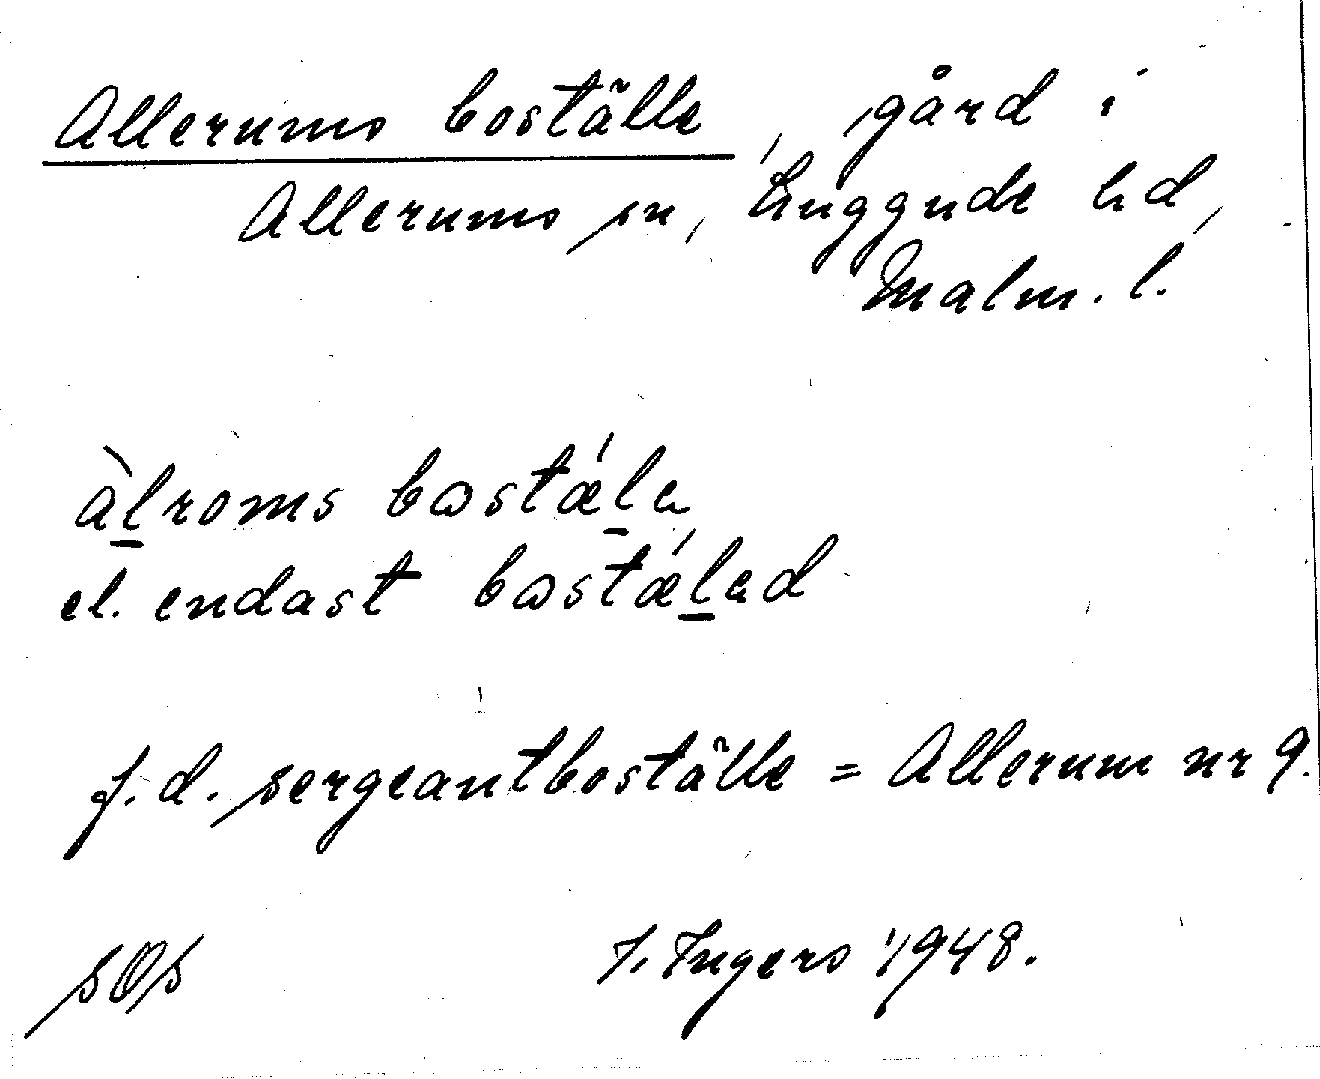 Allerums boställe, gård i
Allerums sn, Luggude hd,
Malm. l.
àlroms bostǽlə
el. endast bostǽləd
f.d. sergeantboställe = Allerum nr 9.
I. Ingers 1948.